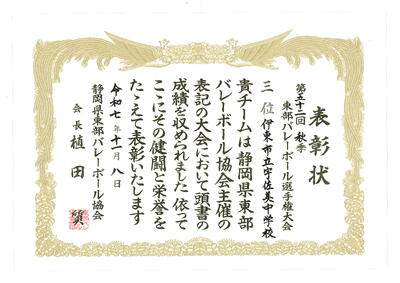 表彰状
第五十二回 秋季
東部バレーボール選手権大会
三 位 伊東市立宇佐美中学校
貴チームは静岡県東部
バレーボール協会主催の
表記の大会において頭書の
成績を収められました 依って
ここにその健闘と栄誉を
たゝえて表彰いたします
令和七年十一月八日
静岡県東部バレーボール協会
会長 植田